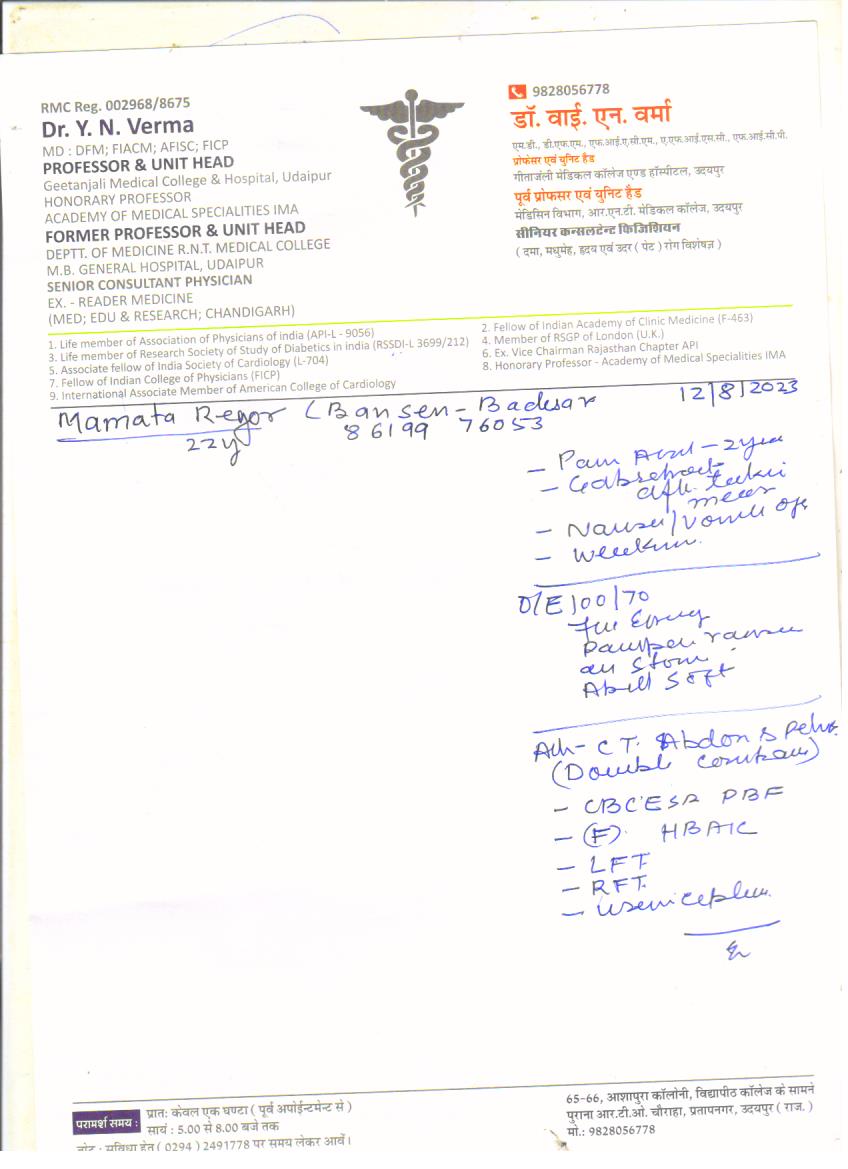 RMC Reg. 002968/8675
Dr. Y. N. Verma
MD : DFM; FIACM; AFISC; FICP
PROFESSOR & UNIT HEAD
Geetanjali Medical College & Hospital, Udaipur
HONORARY PROFESSOR
ACADEMY OF MEDICAL SPECIALITIES IMA
FORMER PROFESSOR & UNIT HEAD
DEPTT. OF MEDICINE R.N.T. MEDICAL COLLEGE
M.B. GENERAL HOSPITAL, UDAIPUR
SENIOR CONSULTANT PHYSICIAN
EX. - READER MEDICINE
(MED; EDU & RESEARCH; CHANDIGARH)
9828056778
डॉ. वाई. एन. वर्मा
एम.डी., डी.एफ.एम., एफ.आई.ए.सी.एम., ए.एफ.आई.एस.सी., एफ.आई.सी.पी.
प्रोफेसर एवं युनिट हैड
गीतांजली मेडिकल कॉलेज एण्ड हॉस्पीटल, उदयपुर
पूर्व प्रोफसर एवं युनिट हैड
मेडिसिन विभाग, आर.एन.टी. मेडिकल कॉलेज, उदयपुर
सीनियर कन्सलटेन्ट फिजिशियन
( दमा, मधुमेह, हृदय एवं उदर ( पेट ) रोग विशेषज्ञ )
1. Life member of Association of Physicians of india (API-L - 9056)
2. Fellow of Indian Academy of Clinic Medicine (F-463)
3. Life member of Research Society of Study of Diabetics in india (RSSDI-L 3699/212)
4. Member of RSGP of London (U.K.)
5. Associate fellow of India Society of Cardiology (L-704)
6. Ex. Vice Chairman Rajasthan Chapter API
7. Fellow of Indian College of Physicians (FICP)
8. Honorary Professor - Academy of Medical Specialities IMA
9. International Associate Member of American College of Cardiology
Mamata Regor (Bansen - Badesar 12/8/2023
22y 86199 76053
- Pain
- 
- Nausea/Vomit
- 
O/E 100/70
Abd Soft
Adv- C T. Abdon & Pelvi
(Double Contrast)
- CBC ESR PBF
- (F). HBA1C
- LFT
- RFT.
परामर्श समय : प्रातः केवल एक घण्टा ( पूर्व अपोईन्टमेन्ट से )
सायं : 5.00 से 8.00 बजे तक
नोट : सुविधा हेतु ( 0294 ) 2491778 पर समय लेकर आवें।
65-66, आशापुरा कॉलोनी, विद्यापीठ कॉलेज के सामने
पुराना आर.टी.ओ. चौराहा, प्रतापनगर, उदयपुर ( राज. )
मो.: 9828056778